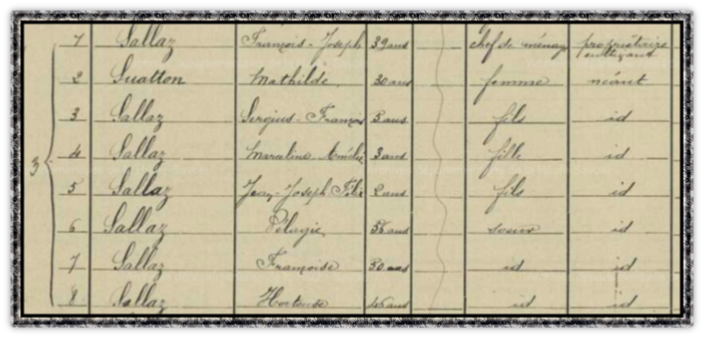 1 Sallaz François-Joseph 39 ans chef de ménage propriétaire cultivant
2 Suatton Mathilde 30 ans femme néant
3 3 Sallaz Sergius-François 5 ans fils id
4 Sallaz Amélie 3 ans fille id
5 Sallaz Jean-Joseph Félix 2 ans fils id
6 Sallaz Pélagie ans soeur id
7 Sallaz Françoise 50 ans id id
8 Sallaz Hortense 46 ans id id